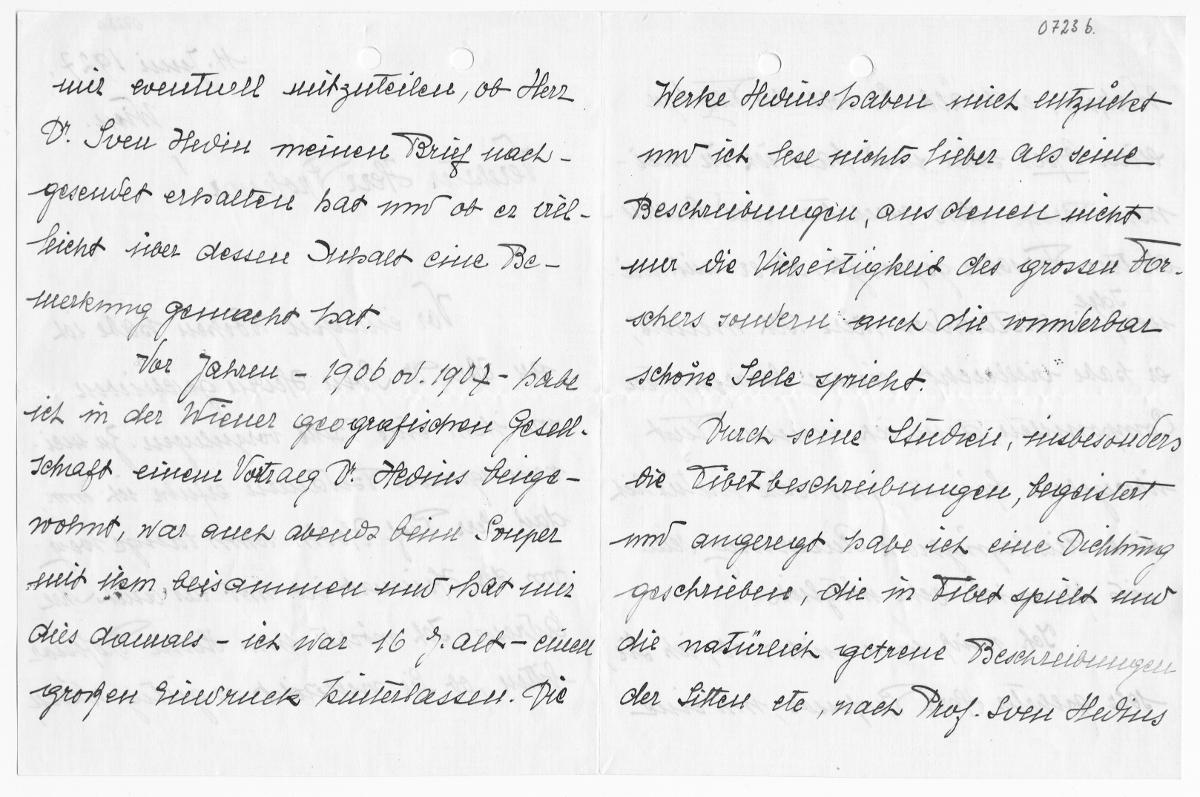 07236.
mir eventuell mitzuteilen, ob Herr
Dr. Sven Hedin meinen Brief nach-
gesendet erhalten hat und ob er viel-
leicht über dessen Inhalt eine Be-
merkung gemacht hat.
Vor Jahren - 1906 od. 1907 - habe
ich in der Wiener geografischen Gesell-
schaft einem Vortrag Dr. Hedins beige-
wohnt, war auch abends beim Souper
mit ihm beisammen und hat mir
dies damals - ich war 16 J. alt - einen
großen Eindruck hinterlassen. Die
Werke Hedins haben mich entzückt
und ich lese nichts lieber als seine
Beschreibungen, aus denen nicht
nur die Vielseitigkeit des grossen For-
schers sondern auch die wunderbar
schöne Seele spricht.
Durch seine Studien, insbesonders
die Tibetbeschreibungen, begeistert
und angeregt habe ich eine Dichtung
geschrieben, die in Tibet spielt und
die natürlich getreue Beschreibungen
der Sitten etc, nach Prof. Sven Hedins